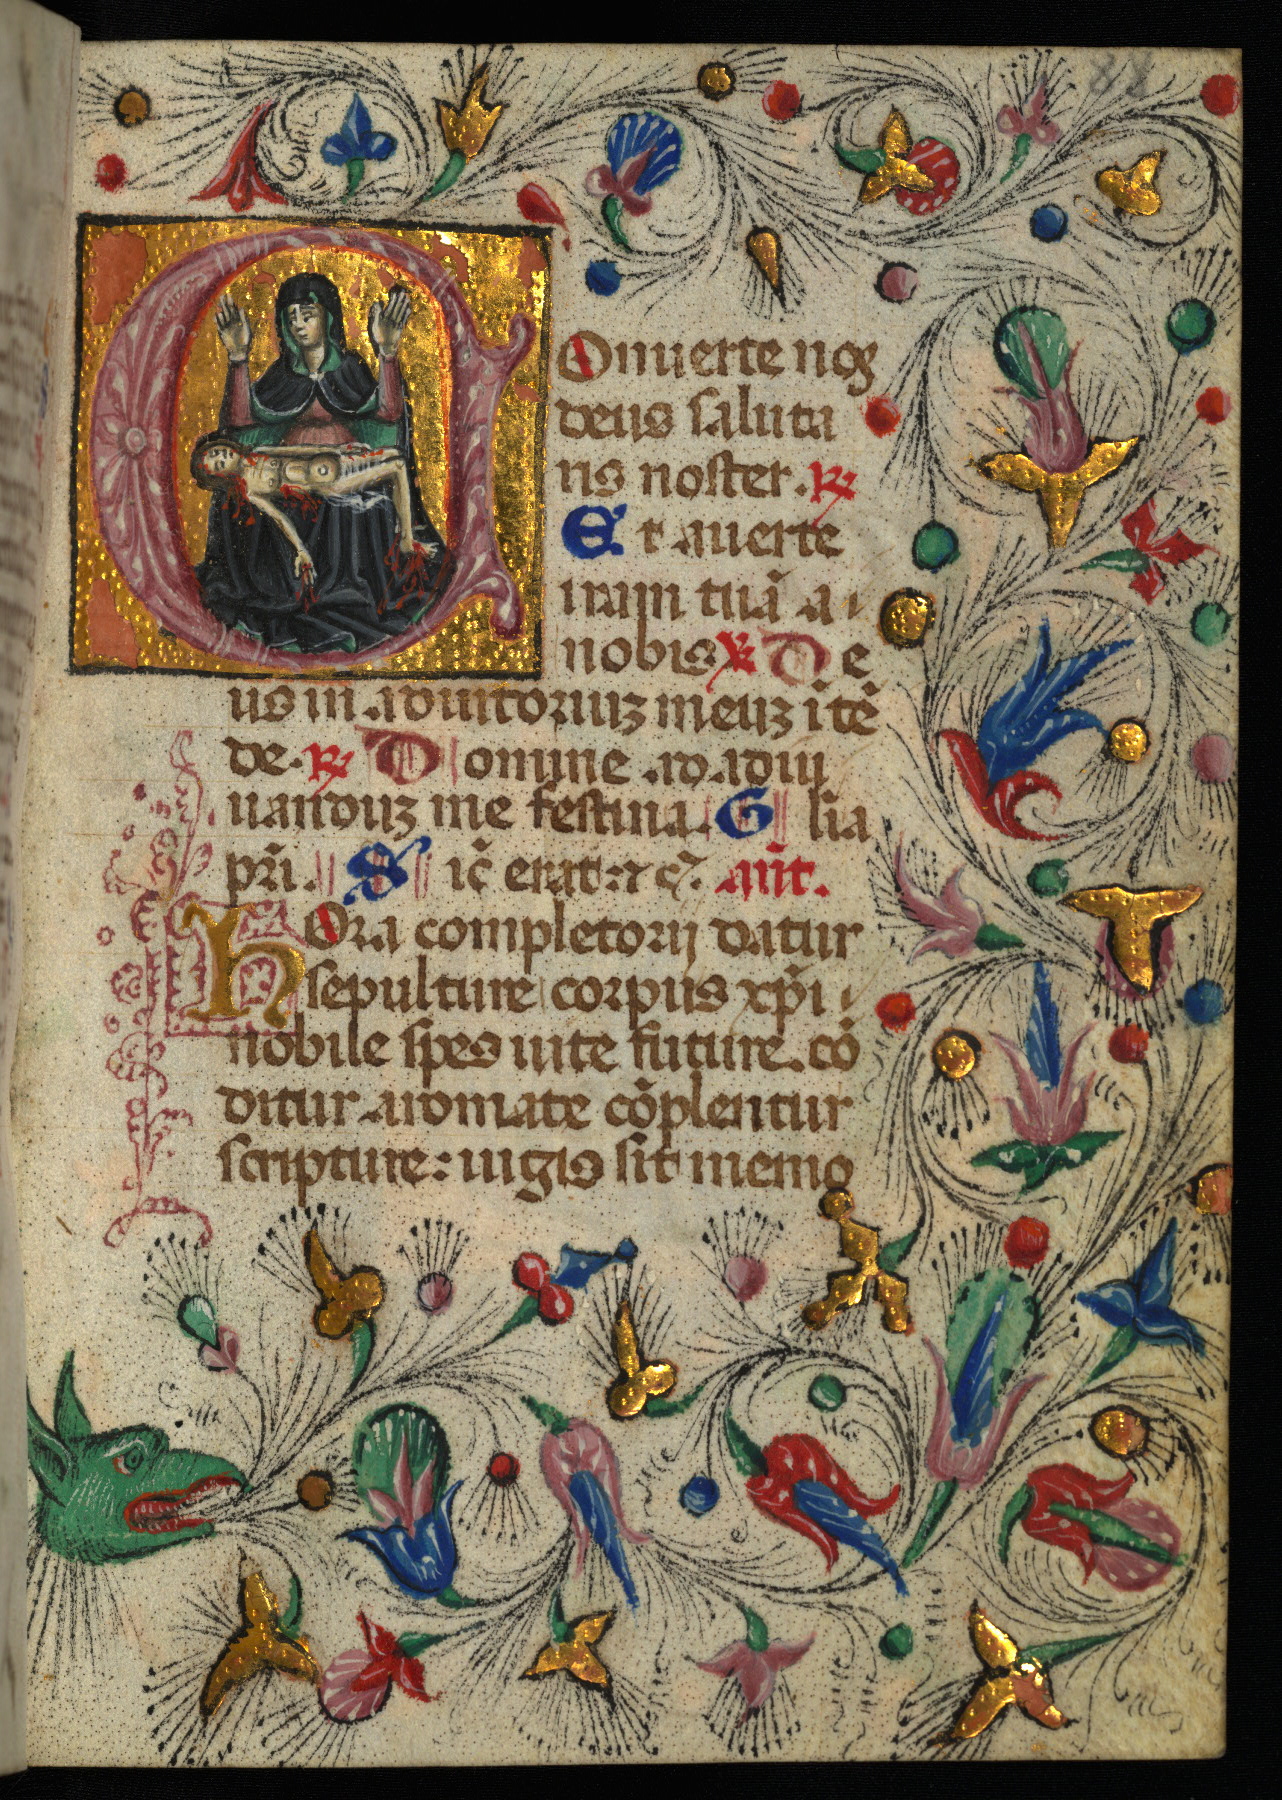 88
COnuerte nos
deus saluta
ris noster. R
Et auerte
iram tuā a
nobis V De
us in adiutoriuz meuz ītē
de. R Domine ad adiu
uanduz me festina. Glia
pr̄i. Sic̄ erat: ⁊ c̄. añt.
hOra completorij datur
sepulture corpus xp̄i
nobile spes uite future. cō
ditur aromate cōplentur
scripture: iugis sit memo